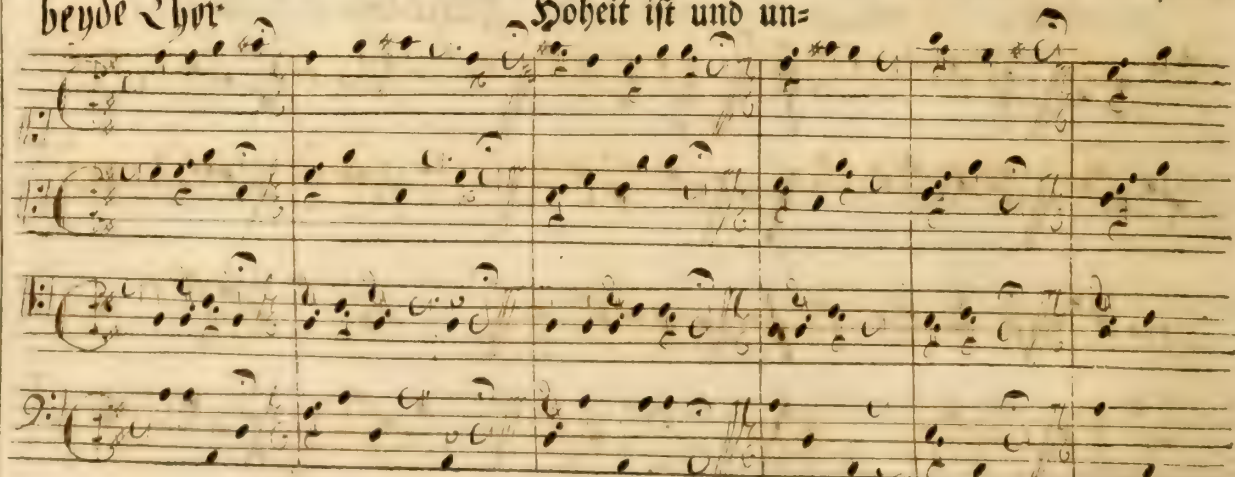 beyde Chör
Hoheit ist und un=